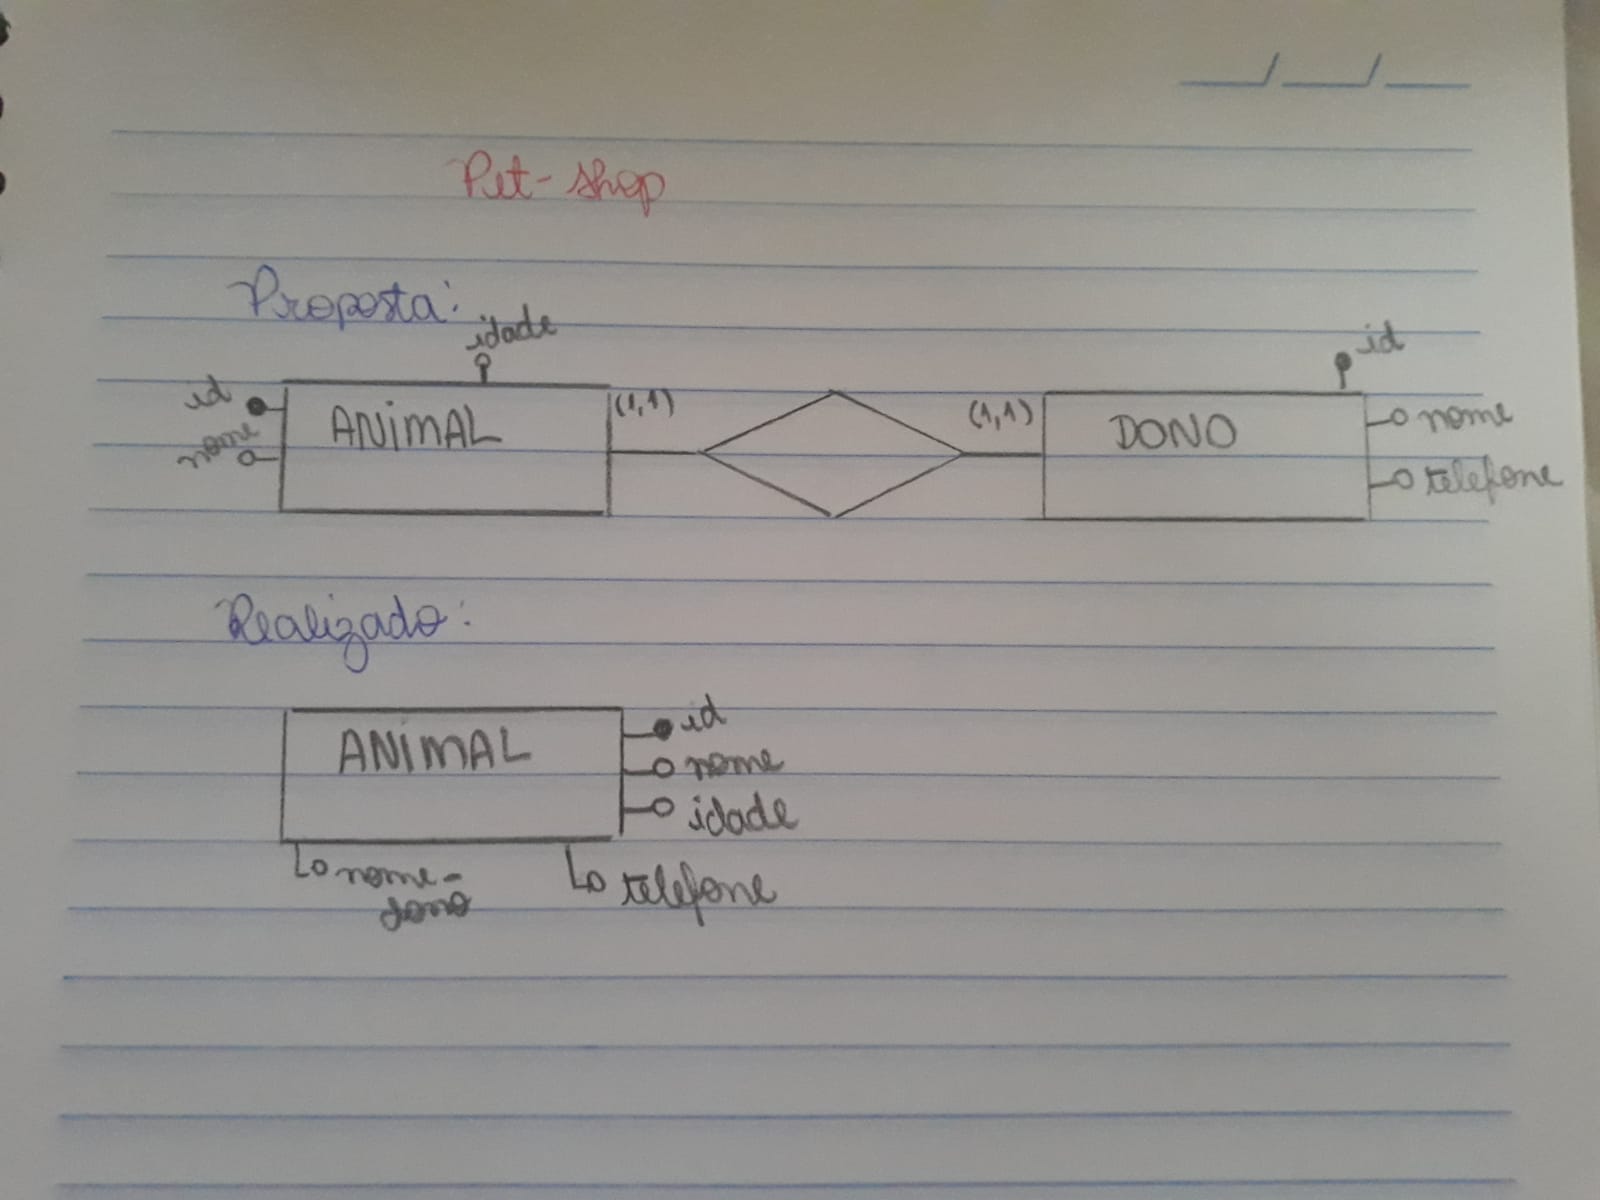 Pet-shop
Proposta:
idade
id
id
ANIMAL
(1,1)
(1,1)
DONO
nome
nome
telefone
Realizado:
ANIMAL
id
nome
idade
nome-
dono
telefone